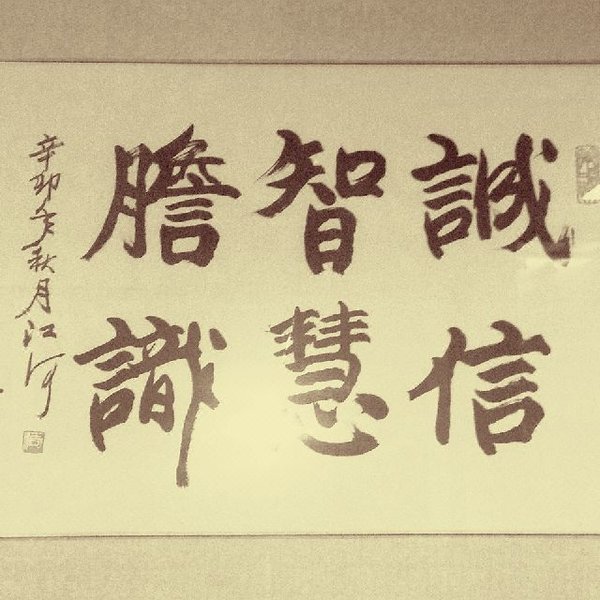 誠信
智慧
膽識
辛卯年秋月江河